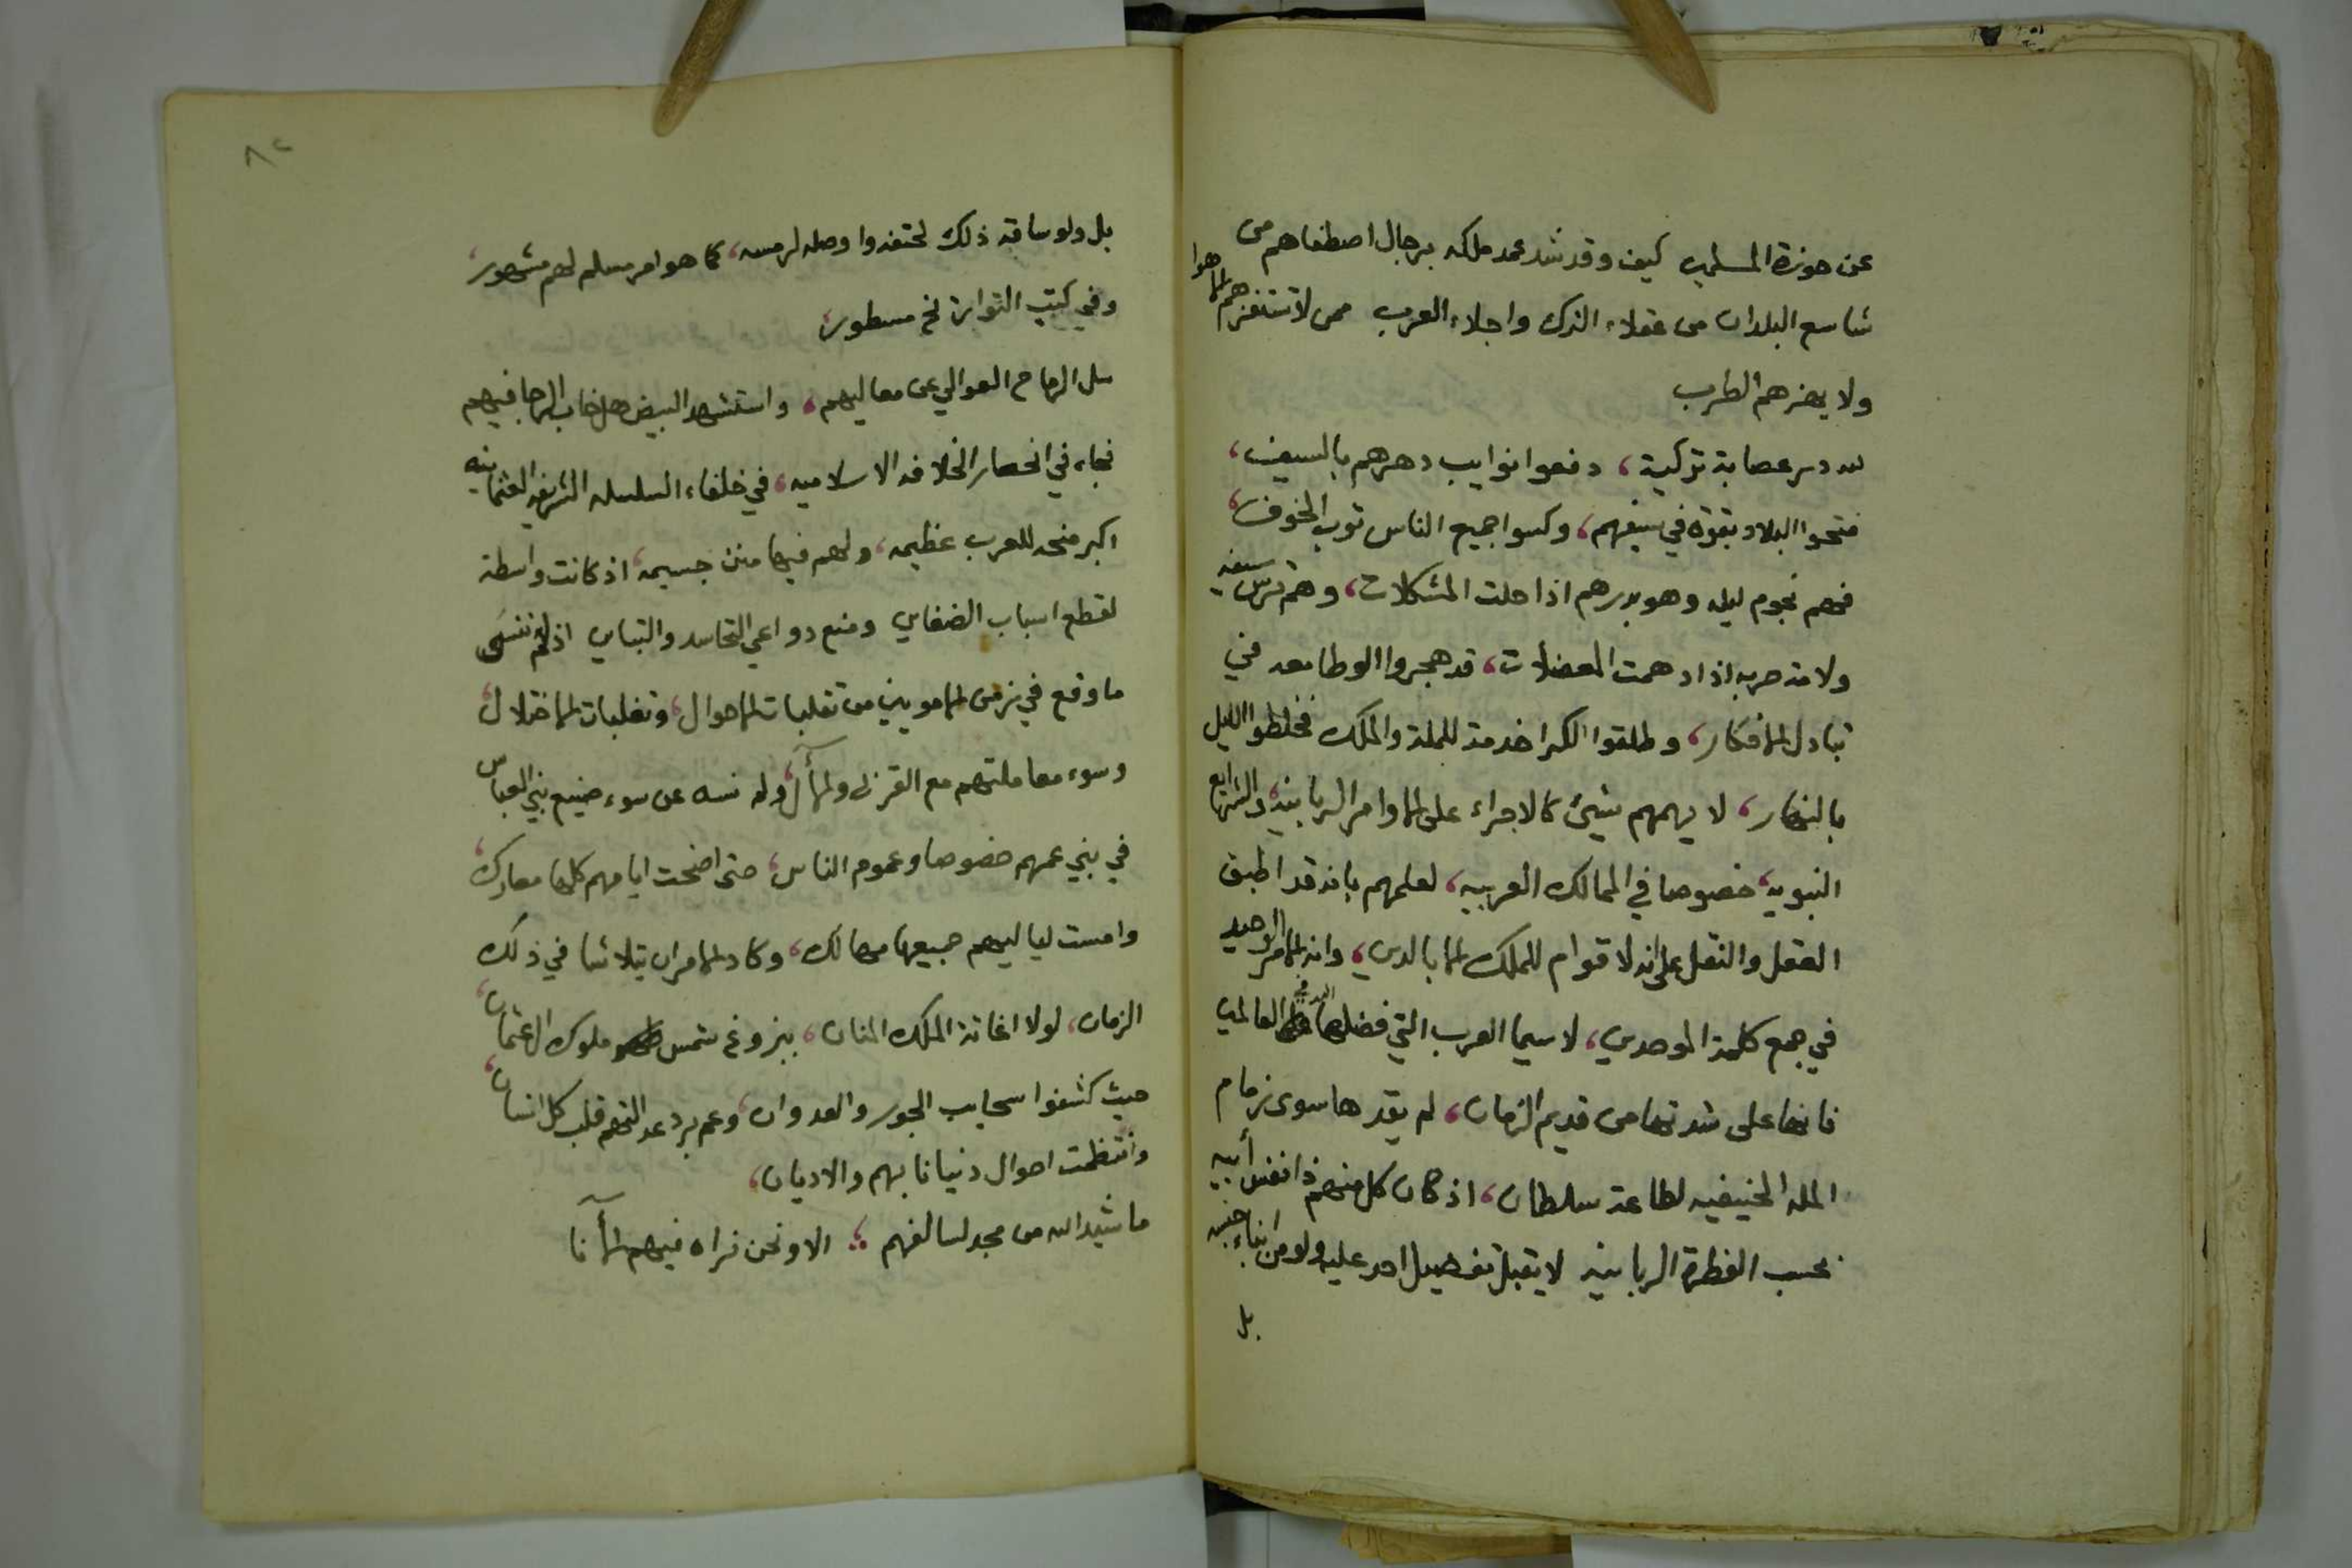 عن حوزة المسلمين كيف وقد شد عمد ملكه برجال اصطفاهم من
شاسع البلدان من عقلاء الترك واجلاء العرب ممن لا تستفزهم الاهوا
ولا يهزهم الطرب
لله در عصابة تركية، دفعوا نوايب دهرهم بالسيف،
فتحوا البلاد بقوة في سيفهم، وكسوا جميع الناس ثوب الخوف،
فهم نجوم ليله وهو بدرهم اذا حلت المشكلات، وهم ترس سيفه
ولامة حربه اذا ادهمت المعضلات، قد هجروا الوطا معه في
تبادل الافكار، وطلقوا الكرا خدمة للملة والملك فخلطوا الليل
بالنهار، لا يهمهم شيئ كالاجراء على الاوامر الربانية، والشرايع
النبويه، خصوصا في الممالك العربيه، لعلمهم بانه قد اطبق
العقل والنقل على انه لا قوام للملك الا بالدين، وانه الامر الوحيد
في جمع كلمة الموحدين، لا سيما العرب التي فضلها الله على العالمين
فانها على شدتها من قديم الزمان، لم يقدها سوى زمام
المله الحنيفيه لطاعة سلطان، اذ كان كل منهم ذا نفس أبيه
بحسب الفطرة الربانيه لا يقبل تفضيل احد عليه ولو من ابناء جنسه
بل
٨٢
بل ولو ساقه ذلك لحتفه واوصله لرمسه، كما هو امر مسلم لهم مشهور،
وفي كتب التواريخ مسطور،
سل الرماح العوالي عن معاليهم، واستشهد البيض هل خاب الرجا فيهم
فجاء في انحصار الخلافه الاسلاميه، في خلفاء السلسله الشريفه العثمانيه
اكبر منحه للعرب عظيمه، ولهم فيها منن جسيمه، اذ كانت واسطة
لقطع اسباب الضغاين ومنع دواعي التحاسد والتباين اذ لم ننسى
ما وقع في زمن الامويين من تقلبات الاحوال، وتغلبات الاختلال،
وسوء معاملتهم مع القرنى والآل، ولم نسه عن سوء صنيع بني العباس
في بني عمهم خصوصا وعموم الناس، حتى اضحت ايامهم كلها معارك،
وامست لياليهم جميعها مهالك، وكاد الامر ان يتلاشا في ذلك
الزمان، لولا اغاثة الملك المنان، ببزوغ شمس ملوك ال عثمان،
حيث كشفوا سحايب الجور والعدوان، وعم برد عدالتهم قلب كل انسان،
وانتظمت احوال دنيانا بهم والاديان،
ما شيد الله من مجد لسالفهم ؛ الا ونحن نراه فيهم الآنا